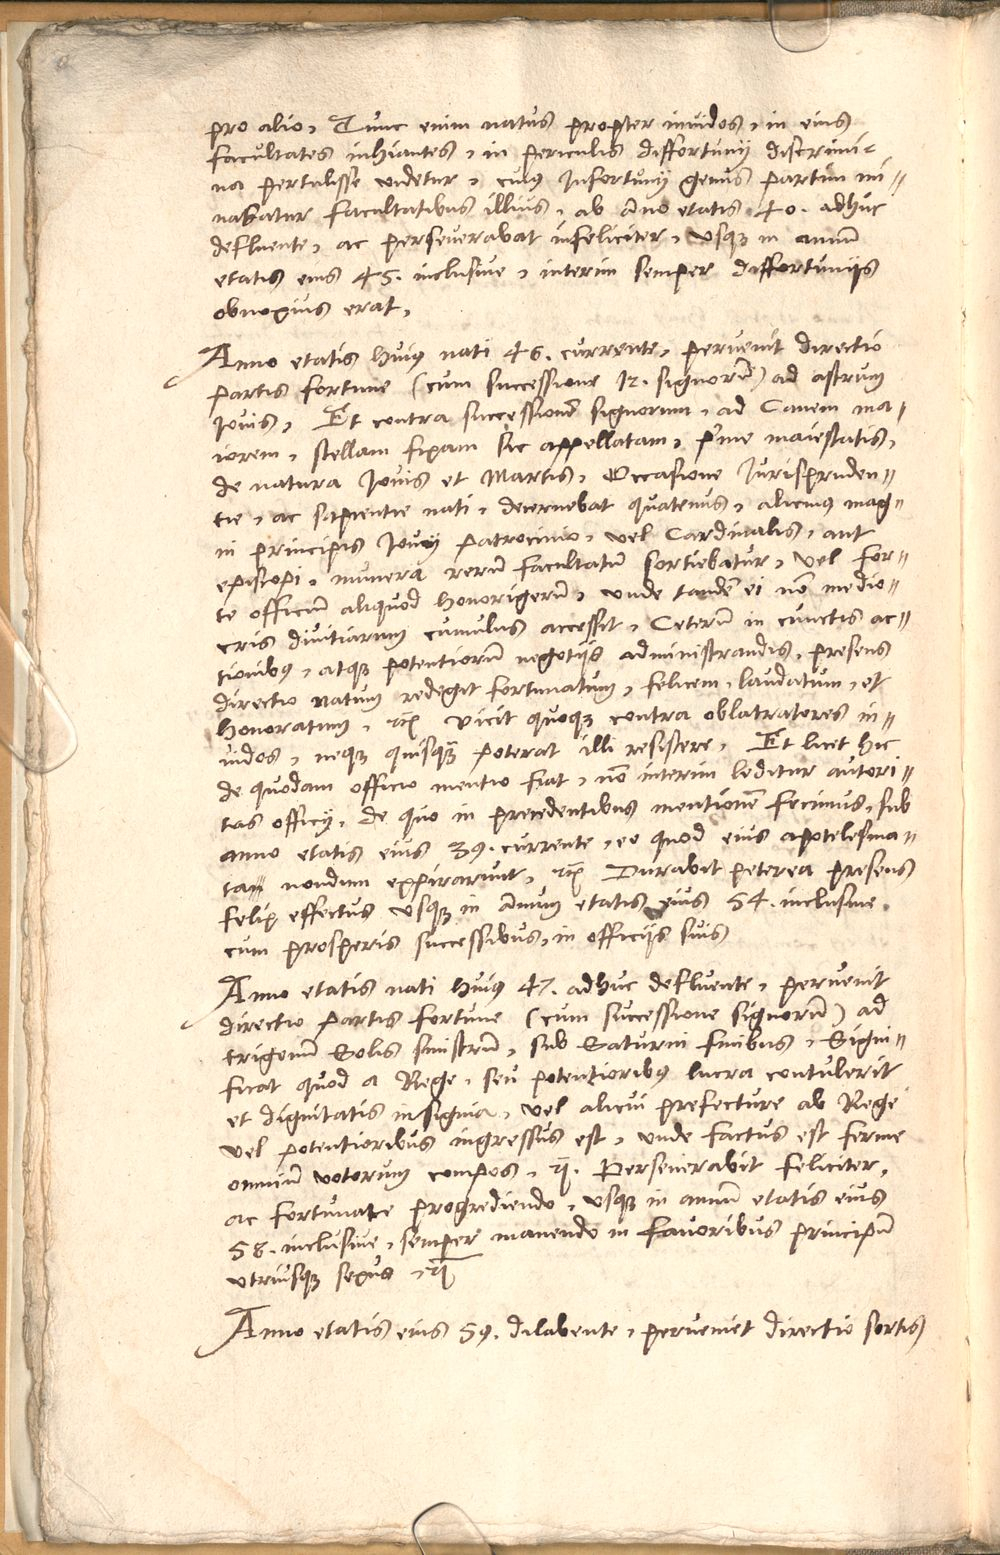 pro alio, Tunc enim natus propter inuidos, in eius
facultates inhiantes, in periculis diffortunij discrimi-
na pertulisse uidetur, cuiꝰ Infortunij genus partim mi-
nabatur facultatibus illius, ab Año etatis 40. adhuc
defluente, ac perseverabat infeliciter, vsqꝫ in annũ
etatis eius 45. inclusiue, interim semper diffortunijs
obnoxius erat,
Anno etatis huiꝰ nati 46. currente, peruenit directio
partis fortune (cum successione 12. signorũ) ad astrum
Iovis, Et contra successionẽ signorum, ad Canem ma-
iorem, stellam fixam sic appellatam, prime maiestatis,
de natura Iovis et Martis, Occasione Iurispruden-
tie, ac sapientie nati, decernebat quatenus, alicuius mag-
ni principis Iovij patrocinio, vel Cardinalis, aut
episcopi, munera rerũ facultatũ sortiebatur, vel for-
te officiũ aliquod honorigerũ, unde tandẽ ei nõ medio-
cris divitiarum cumulus accessit, Ceterũ in cunctis ac-
tionibꝰ, atqꝫ potentiorũ negotijs administrandis, presens
directio natum redegit fortunatum, felicem, laudatum, et
honoratum, ꝛc̃ vicit quoqꝫ contra oblatratores in-
uidos, neqꝫ quisqꝫ poterat illi resistere, Et licet hic
de quodam officio mentio fiat, nõ interim leditur autori-
tas officij, de quo in precedentibus mentionẽ fecimus, sub
anno etatis eius 39. currente, eo quod eius apotelesma-
ta nondum expirarunt, ꝛc̃ Durabit peterea presens
felix effectus vsqꝫ in Annum etatis eius 54. inclusiue.
cum prosperis successibus, in officijs suis
Anno etatis nati huiꝰ 47. adhuc defluente, peruenit
directio partis fortune (cum successione signorũ) ad
trigonũ Solis sinistrũ, sub Saturni finibus, Signi-
ficat quod a Rege, seu potentioribꝰ lucra contulerit
et dignitatis insignia, vel alicui prefecture ab Rege
vel potentioribus ingressus est, unde factus est ferme
omniũ votorum compos, ꝛc̃. Perseuerabit feliciter,
ac fortunate progrediendo, vsqꝫ in annũ etatis eius
58. inclusiue, semper manendo in favoribus principũ
vtriusqꝫ sexus, ꝛc̃
Anno etatis eius 59. dilabente, perueniet directio sortis